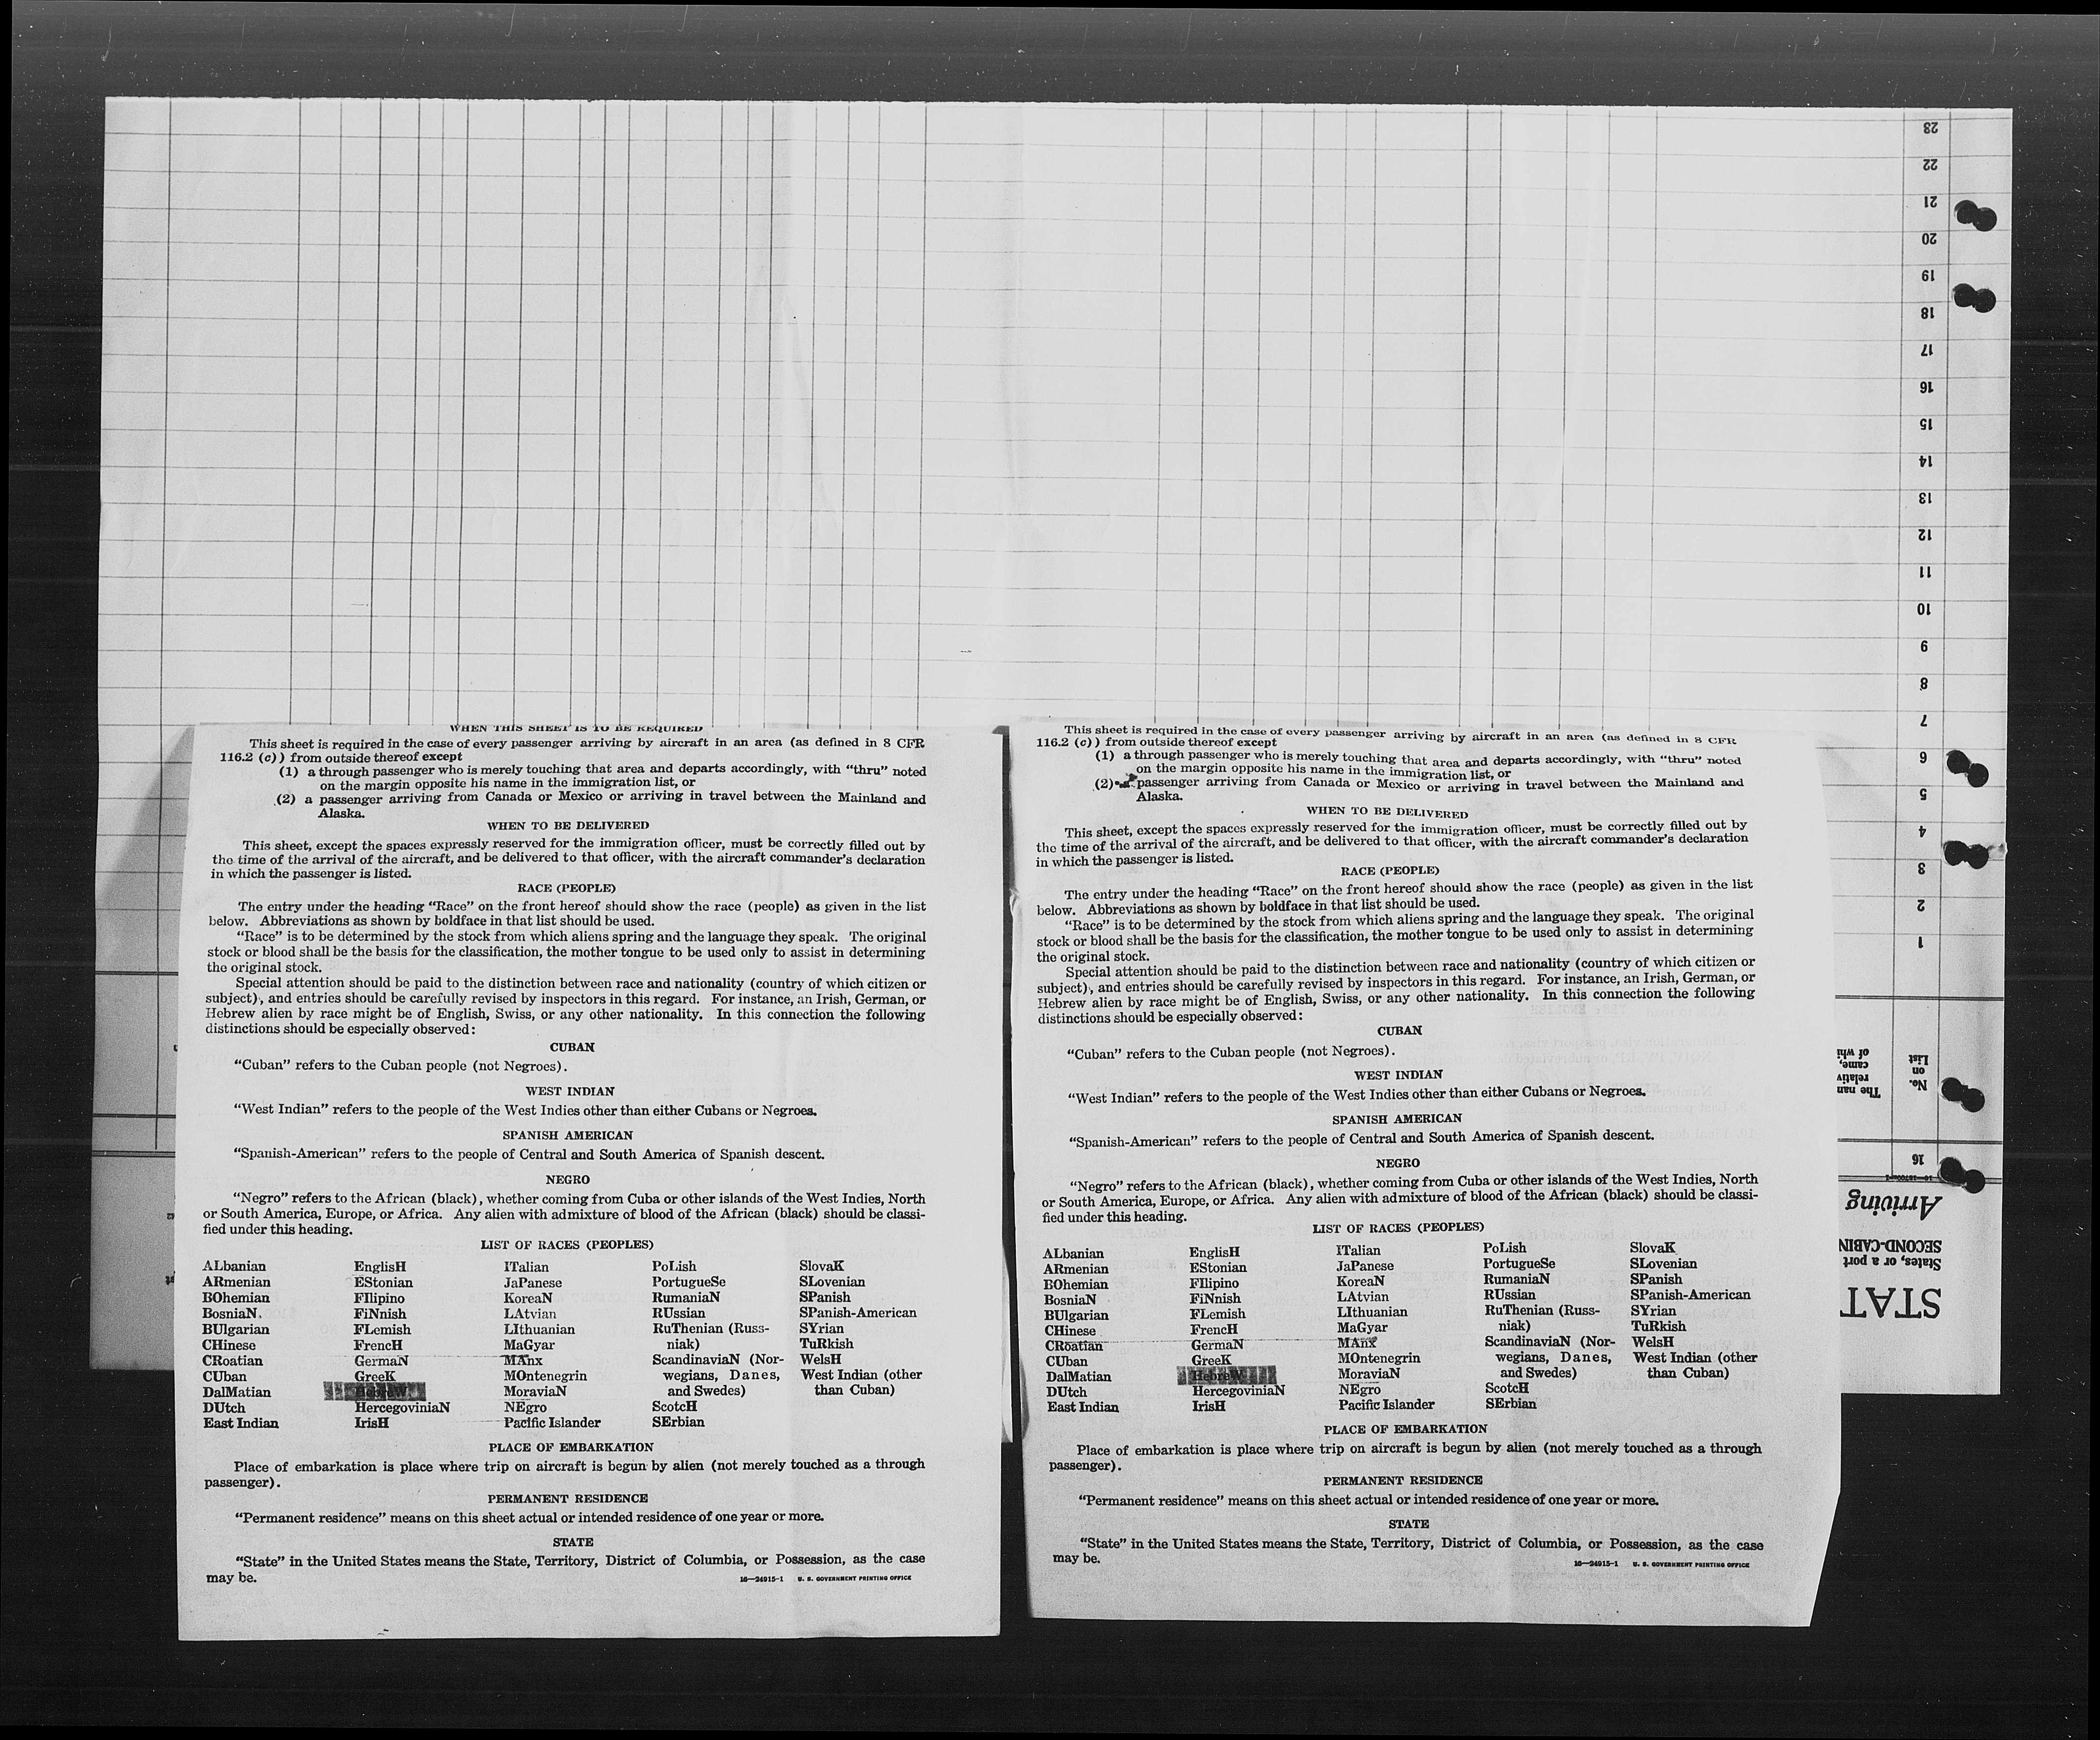 WHEN THIS SHEET IS TO BE REQUIRED
This sheet is required in the case of every passenger arriving by aircraft in an area (as defined in 8 CFR
116.2 (c)) from outside thereof except
(1) a through passenger who is merely touching that area and departs accordingly, with “thru” noted
on the margin opposite his name in the immigration list, or
(2) a passenger arriving from Canada or Mexico or arriving in travel between the Mainland and
Alaska.
WHEN TO BE DELIVERED
This sheet, except the spaces expressly reserved for the immigration officer, must be correctly filled out by
the time of the arrival of the aircraft, and be delivered to that officer, with the aircraft commander’s declaration
in which the passenger is listed.
RACE (PEOPLE)
The entry under the heading “Race” on the front hereof should show the race (people) as given in the list
below. Abbreviations as shown by boldface in that list should be used.
“Race” is to be determined by the stock from which aliens spring and the language they speak. The original
stock or blood shall be the basis for the classification, the mother tongue to be used only to assist in determining
the original stock.
Special attention should be paid to the distinction between race and nationality (country of which citizen or
subject), and entries should be carefully revised by inspectors in this regard. For instance, an Irish, German, or
Hebrew alien by race might be of English, Swiss, or any other nationality. In this connection the following
distinctions should be especially observed:
CUBAN
“Cuban” refers to the Cuban people (not Negroes).
WEST INDIAN
“West Indian” refers to the people of the West Indies other than either Cubans or Negroes.
SPANISH AMERICAN
“Spanish-American” refers to the people of Central and South America of Spanish descent.
NEGRO
“Negro” refers to the African (black), whether coming from Cuba or other islands of the West Indies, North
or South America, Europe, or Africa. Any alien with admixture of blood of the African (black) should be classi-
fied under this heading.
LIST OF RACES (PEOPLES)
ALbanian EnglisH ITalian PoLish SlovaK
ARmenian EStonian JaPanese PortugueSe SLovenian
BOhemian FIlipino KoreaN RumaniaN SPanish
BosniaN. FiNnish LAtvian RUssian SPanish-American
BUlgarian FLemish LIthuanian RuThenian (Russ- SYrian
CHinese FrencH MaGyar niak) TuRkish
CRoatian GermaN MAnx ScandinaviaN (Nor- WelsH
CUban GreeK MOntenegrin wegians, Danes, West Indian (other
DalMatian HebreW MoraviaN and Swedes) than Cuban)
DUtch HercegoviniaN NEgro ScotcH
East Indian IrisH Pacific Islander SErbian
PLACE OF EMBARKATION
Place of embarkation is place where trip on aircraft is begun by alien (not merely touched as a through
passenger).
PERMANENT RESIDENCE
“Permanent residence” means on this sheet actual or intended residence of one year or more.
STATE
“State” in the United States means the State, Territory, District of Columbia, or Possession, as the case
may be.
16—24915-1 U. S. GOVERNMENT PRINTING OFFICE
This sheet is required in the case of every passenger arriving by aircraft in an area (as defined in 8 CFR
116.2 (c)) from outside thereof except
(1) a through passenger who is merely touching that area and departs accordingly, with “thru” noted
on the margin opposite his name in the immigration list, or
(2) passenger arriving from Canada or Mexico or arriving in travel between the Mainland and
Alaska.
WHEN TO BE DELIVERED
This sheet, except the spaces expressly reserved for the immigration officer, must be correctly filled out by
the time of the arrival of the aircraft, and be delivered to that officer, with the aircraft commander’s declaration
in which the passenger is listed.
RACE (PEOPLE)
The entry under the heading “Race” on the front hereof should show the race (people) as given in the list
below. Abbreviations as shown by boldface in that list should be used.
“Race” is to be determined by the stock from which aliens spring and the language they speak. The original
stock or blood shall be the basis for the classification, the mother tongue to be used only to assist in determining
the original stock.
Special attention should be paid to the distinction between race and nationality (country of which citizen or
subject), and entries should be carefully revised by inspectors in this regard. For instance, an Irish, German, or
Hebrew alien by race might be of English, Swiss, or any other nationality. In this connection the following
distinctions should be especially observed:
CUBAN
“Cuban” refers to the Cuban people (not Negroes).
WEST INDIAN
“West Indian” refers to the people of the West Indies other than either Cubans or Negroes.
SPANISH AMERICAN
“Spanish-American” refers to the people of Central and South America of Spanish descent.
NEGRO
“Negro” refers to the African (black), whether coming from Cuba or other islands of the West Indies, North
or South America, Europe, or Africa. Any alien with admixture of blood of the African (black) should be classi-
fied under this heading.
LIST OF RACES (PEOPLES)
ALbanian EnglisH ITalian PoLish SlovaK
ARmenian EStonian JaPanese PortugueSe SLovenian
BOhemian FIlipino KoreaN RumaniaN SPanish
BosniaN FiNnish LAtvian RUssian SPanish-American
BUlgarian FLemish LIthuanian RuThenian (Russ- SYrian
CHinese FrencH MaGyar niak) TuRkish
CRoatian GermaN MAnx ScandinaviaN (Nor- WelsH
CUban GreeK MOntenegrin wegians, Danes, West Indian (other
DalMatian HebreW MoraviaN and Swedes) than Cuban)
DUtch HercegoviniaN NEgro ScotcH
East Indian IrisH Pacific Islander SErbian
PLACE OF EMBARKATION
Place of embarkation is place where trip on aircraft is begun by alien (not merely touched as a through
passenger).
PERMANENT RESIDENCE
“Permanent residence” means on this sheet actual or intended residence of one year or more.
STATE
“State” in the United States means the State, Territory, District of Columbia, or Possession, as the case
may be.
16—24915-1 U. S. GOVERNMENT PRINTING OFFICE
STAT
States, or a port
SECOND-CABIN
Arriving
16
No.
on
List
The nan
relativ
came,
of whi
1
2
3
4
5
6
7
8
9
10
11
12
13
14
15
16
17
18
19
20
21
22
23